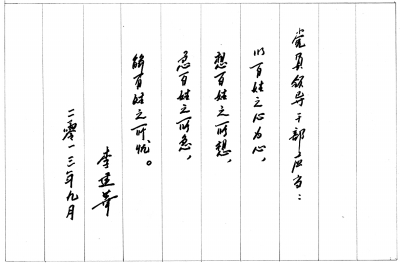 党员领导干部应当：
以百姓之心为心，
想百姓之所想，
急百姓之所急，
解百姓之所忧。
李建华
二零一三年九月